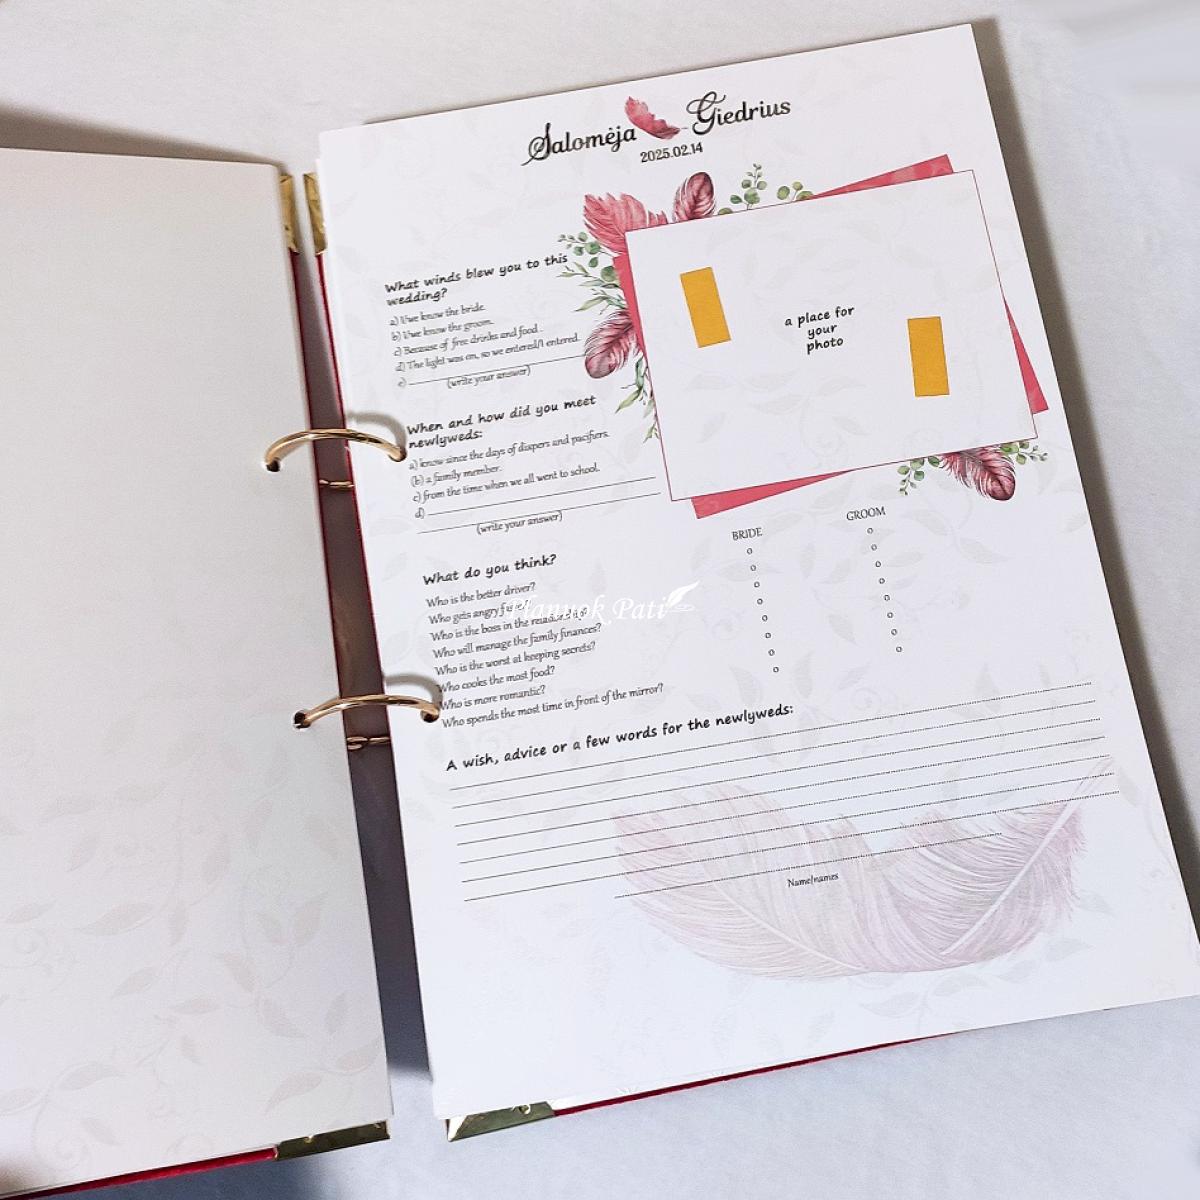 Salomėja Giedrius
2025.02.14
What winds blew you to this
wedding?
a) I/we know the bride.
b) I/we know the groom.
c) Because of free drinks and food .
d) The light was on, so we entered/I entered.
e)
(write your answer)
a place for
your
photo
When and how did you meet
newlyweds:
a) know since the days of diapers and pacifiers.
(b) a family member.
c) from the time when we all went to school.
d)
(write your answer)
BRIDE GROOM
What do you think?
Who is the better driver?
Who gets angry
Who is the boss in the
Who will manage the family finances?
Who is the worst at keeping secrets?
Who cooks the most food?
Who is more romantic?
Who spends the most time in front of the mirror?
Planuok Pati
A wish, advice or a few words for the newlyweds:
Name/names